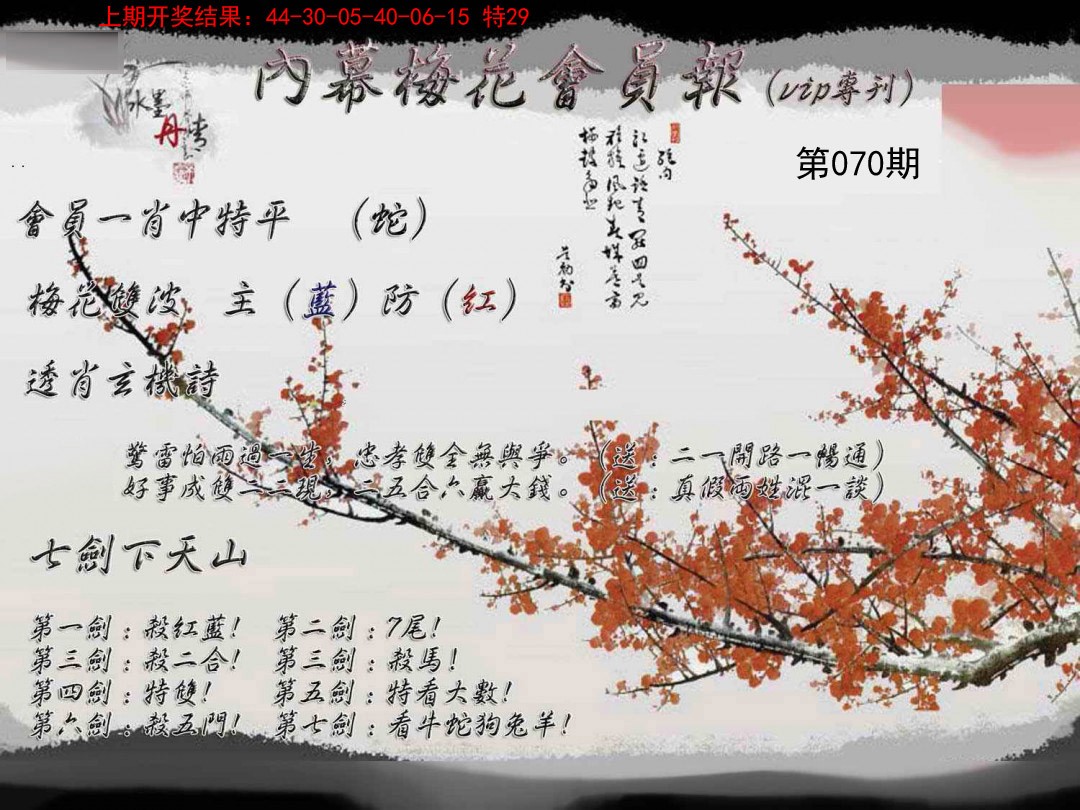 上期开奖结果：44-30-05-40-06-15 特29
內幕梅花會員報（vip專刊）
水墨
丹青
第070期
會員一肖中特平 （蛇）
梅花雙波 主（藍）防（红）
透肖玄機詩
驚雷怕雨過一生，忠孝雙全無與爭。（送：二一開路一暢通）
好事成雙二二現，二五合六贏大錢。（送：真假两姓混一談）
七劍下天山
第一劍：殺红藍！ 第二劍：7尾！
第三劍：殺二合！ 第三劍：殺馬！
第四劍：特雙！ 第五劍：特看大數！
第六劍：殺五門！ 第七劍：看牛蛇狗兔羊！